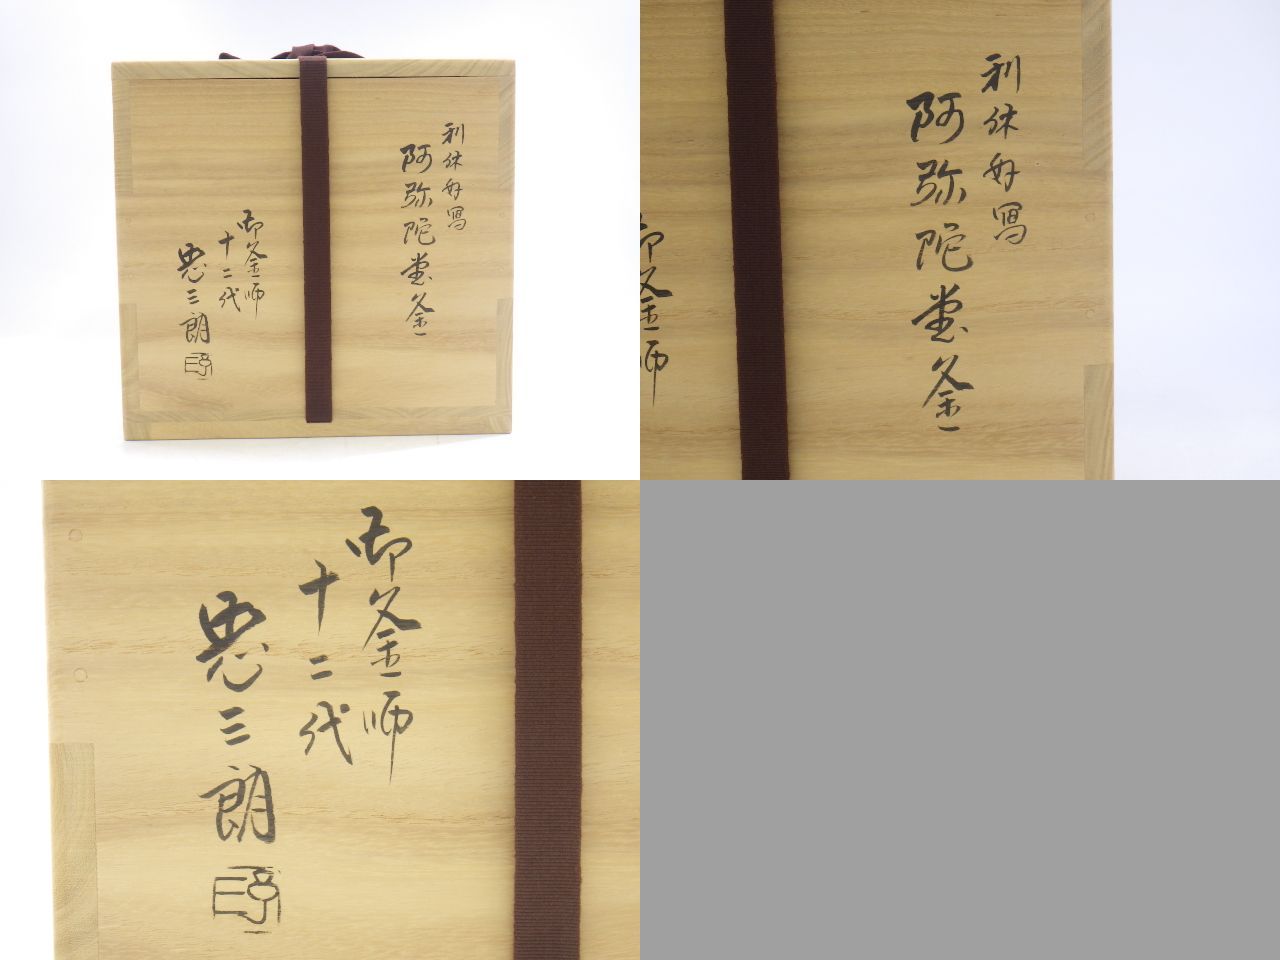 利休好写
阿弥陀堂釜
御釜師
十二代
忠三朗
利休好写
阿弥陀堂釜
御釜師
御釜師
十二代
忠三朗